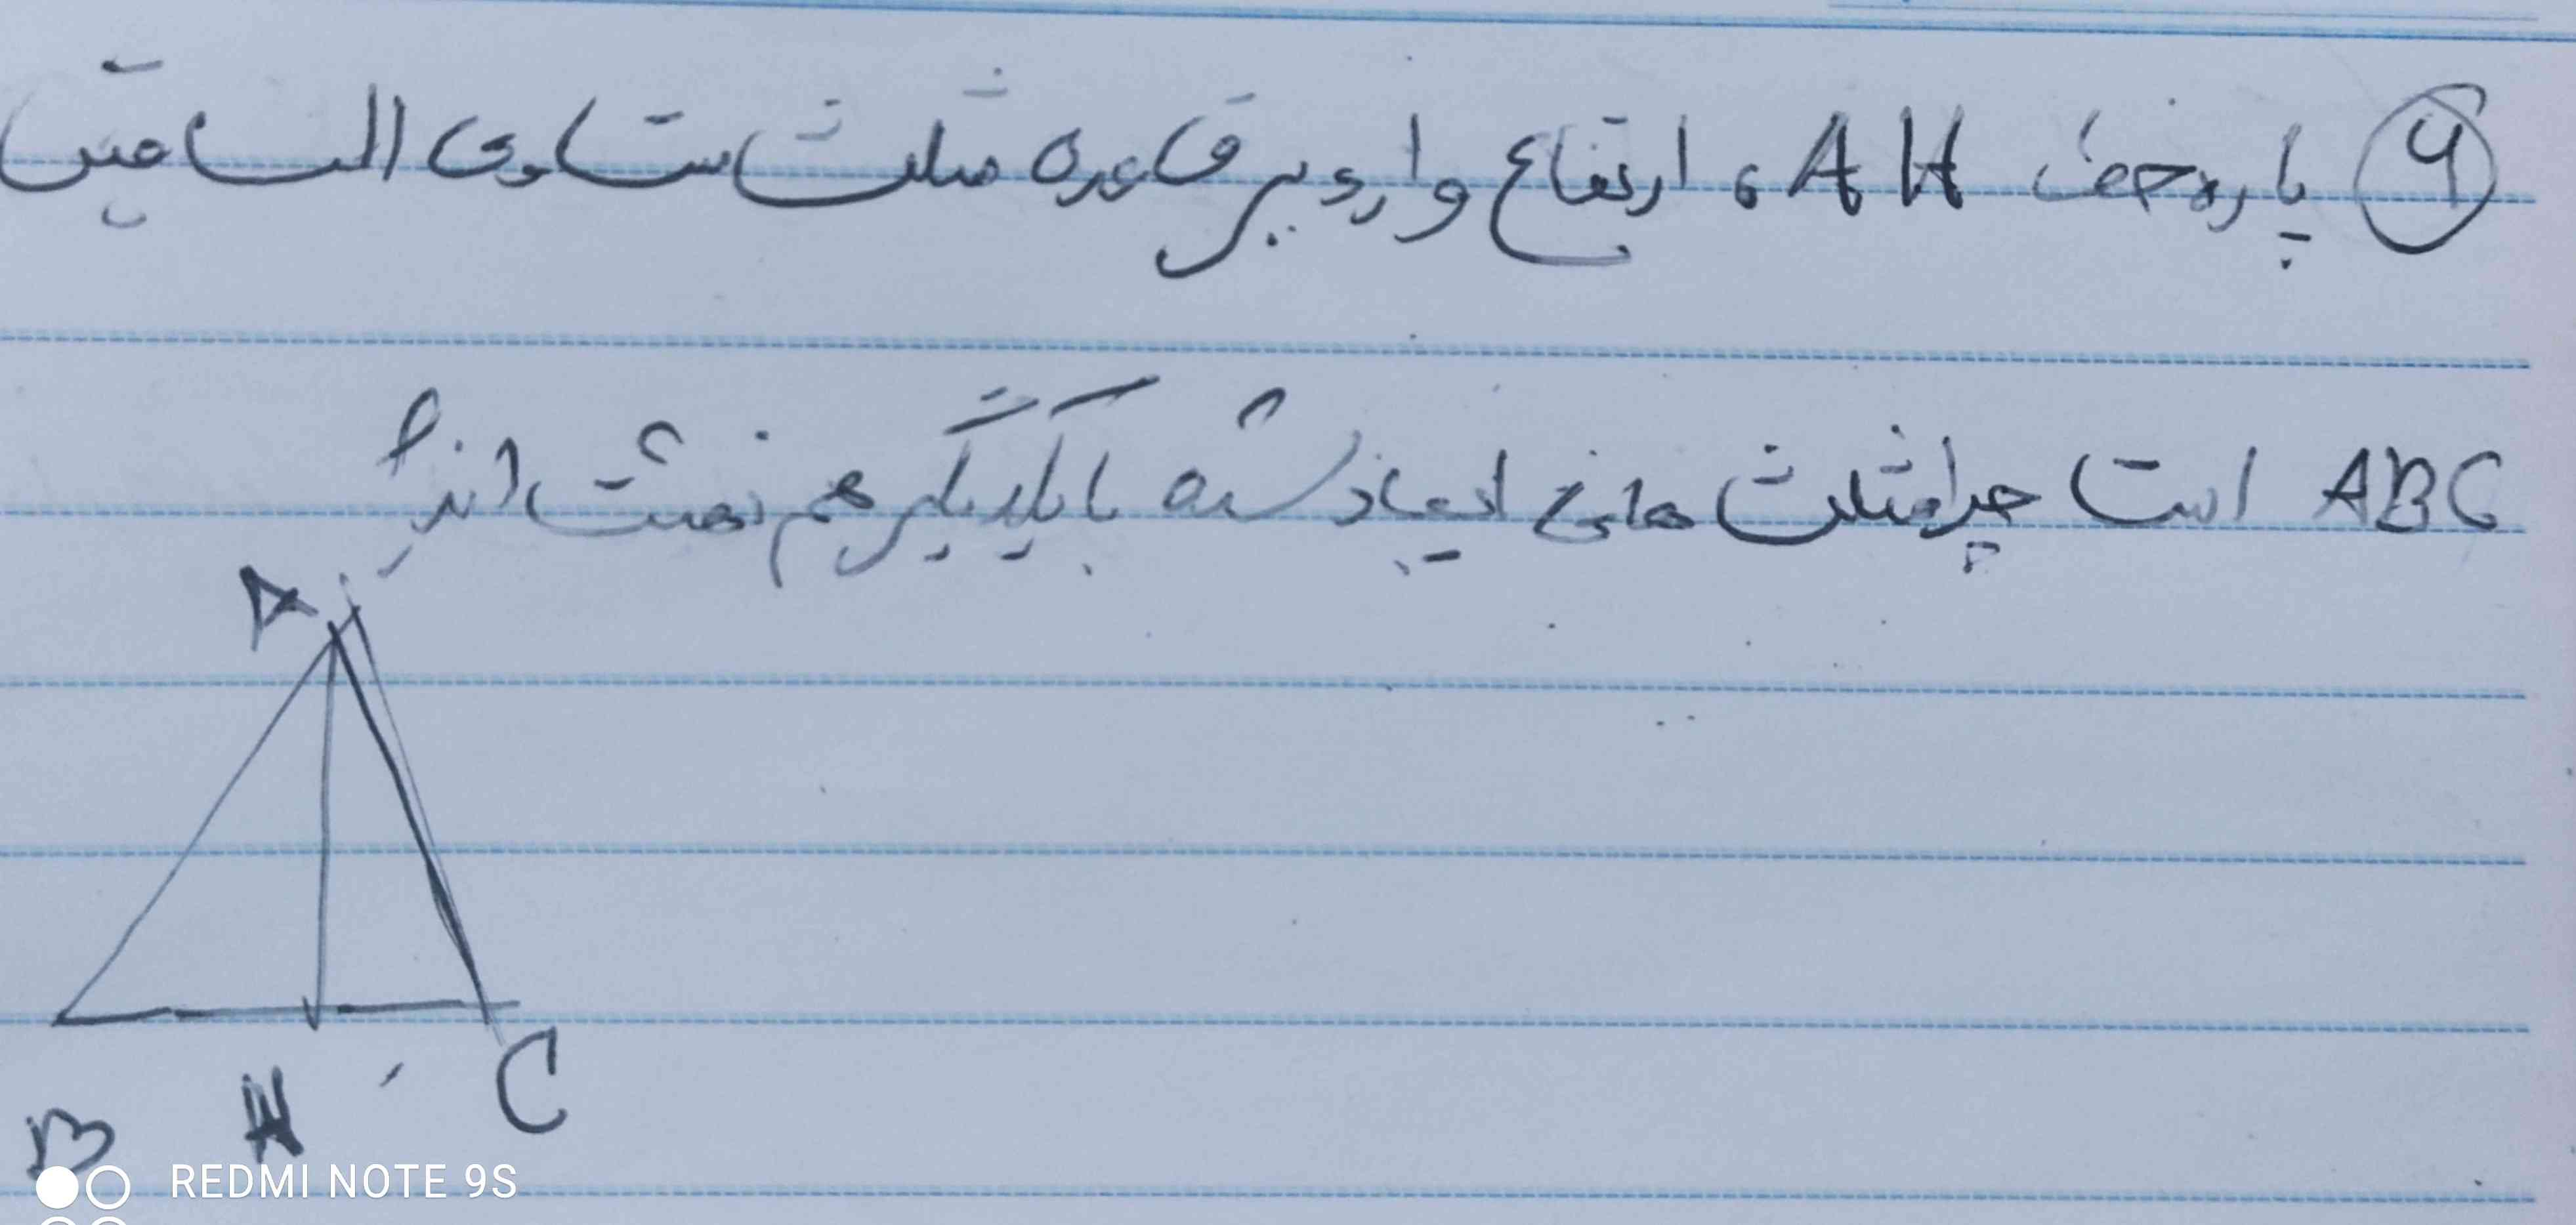 ۶ پاره خط AH، ارتفاع وارد بر قاعده مثلث متساوی الساقین
ABC است چرا مثلث های ایجاد شده با یکدیگر هم نهشت اند؟
A
B H C
REDMI NOTE 9S